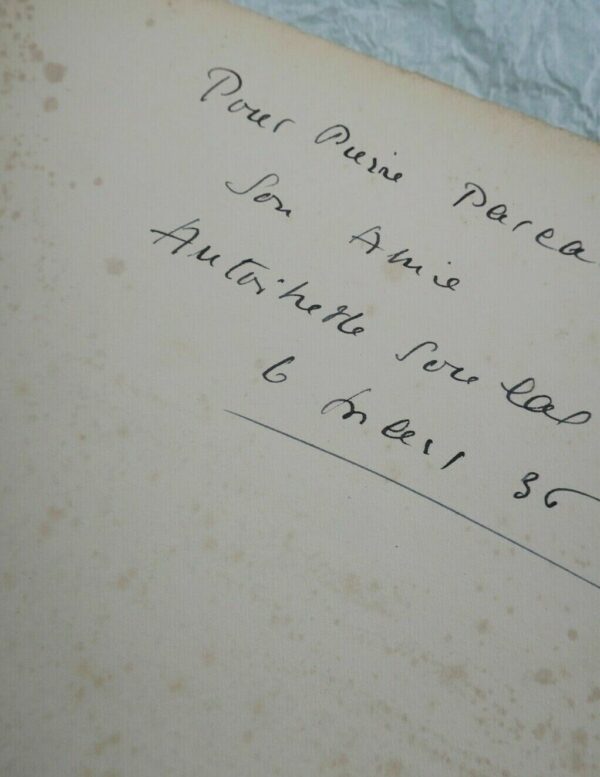 Pour Pierre Parca
Son Amie
Antoinette Soulas
6 Mars 36